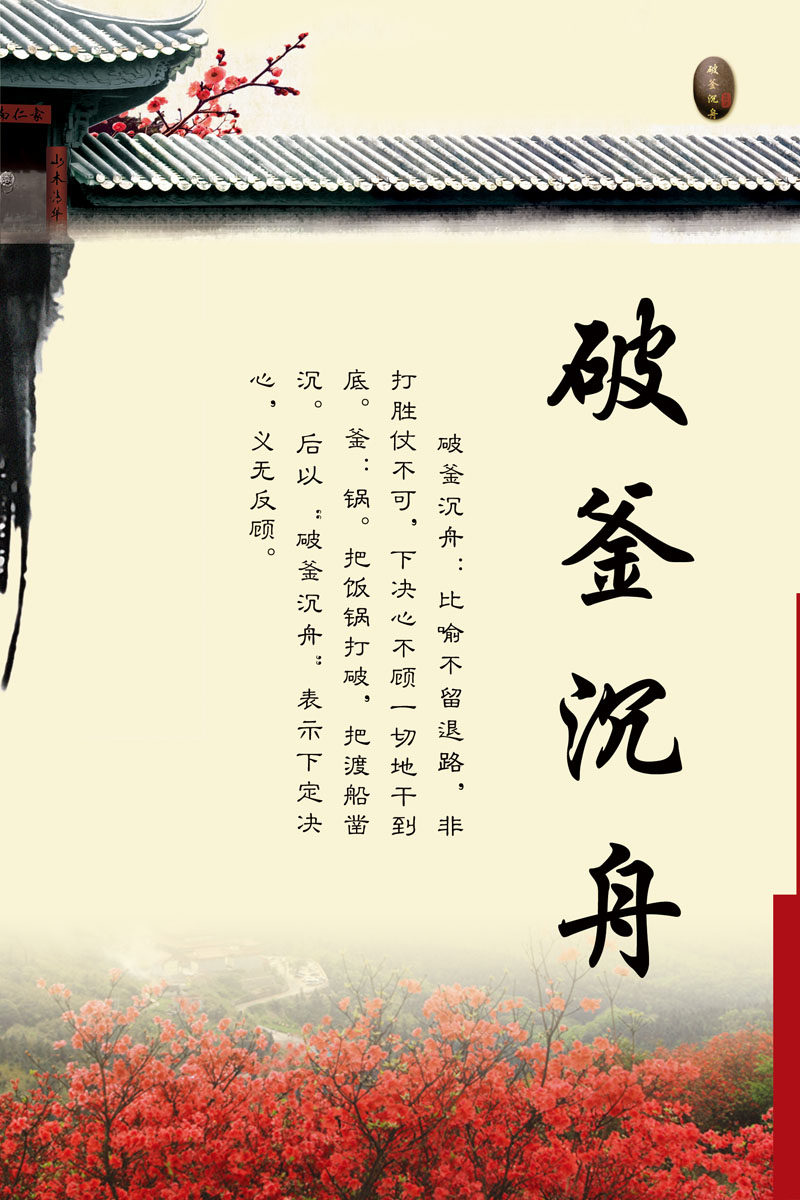 破釜沉舟
破釜沉舟
破釜沉舟：比喻不留退路，非
打胜仗不可，下决心不顾一切地干到
底。釜：锅。把饭锅打破，把渡船凿
沉。后以“破釜沉舟”表示下定决
心，义无反顾。